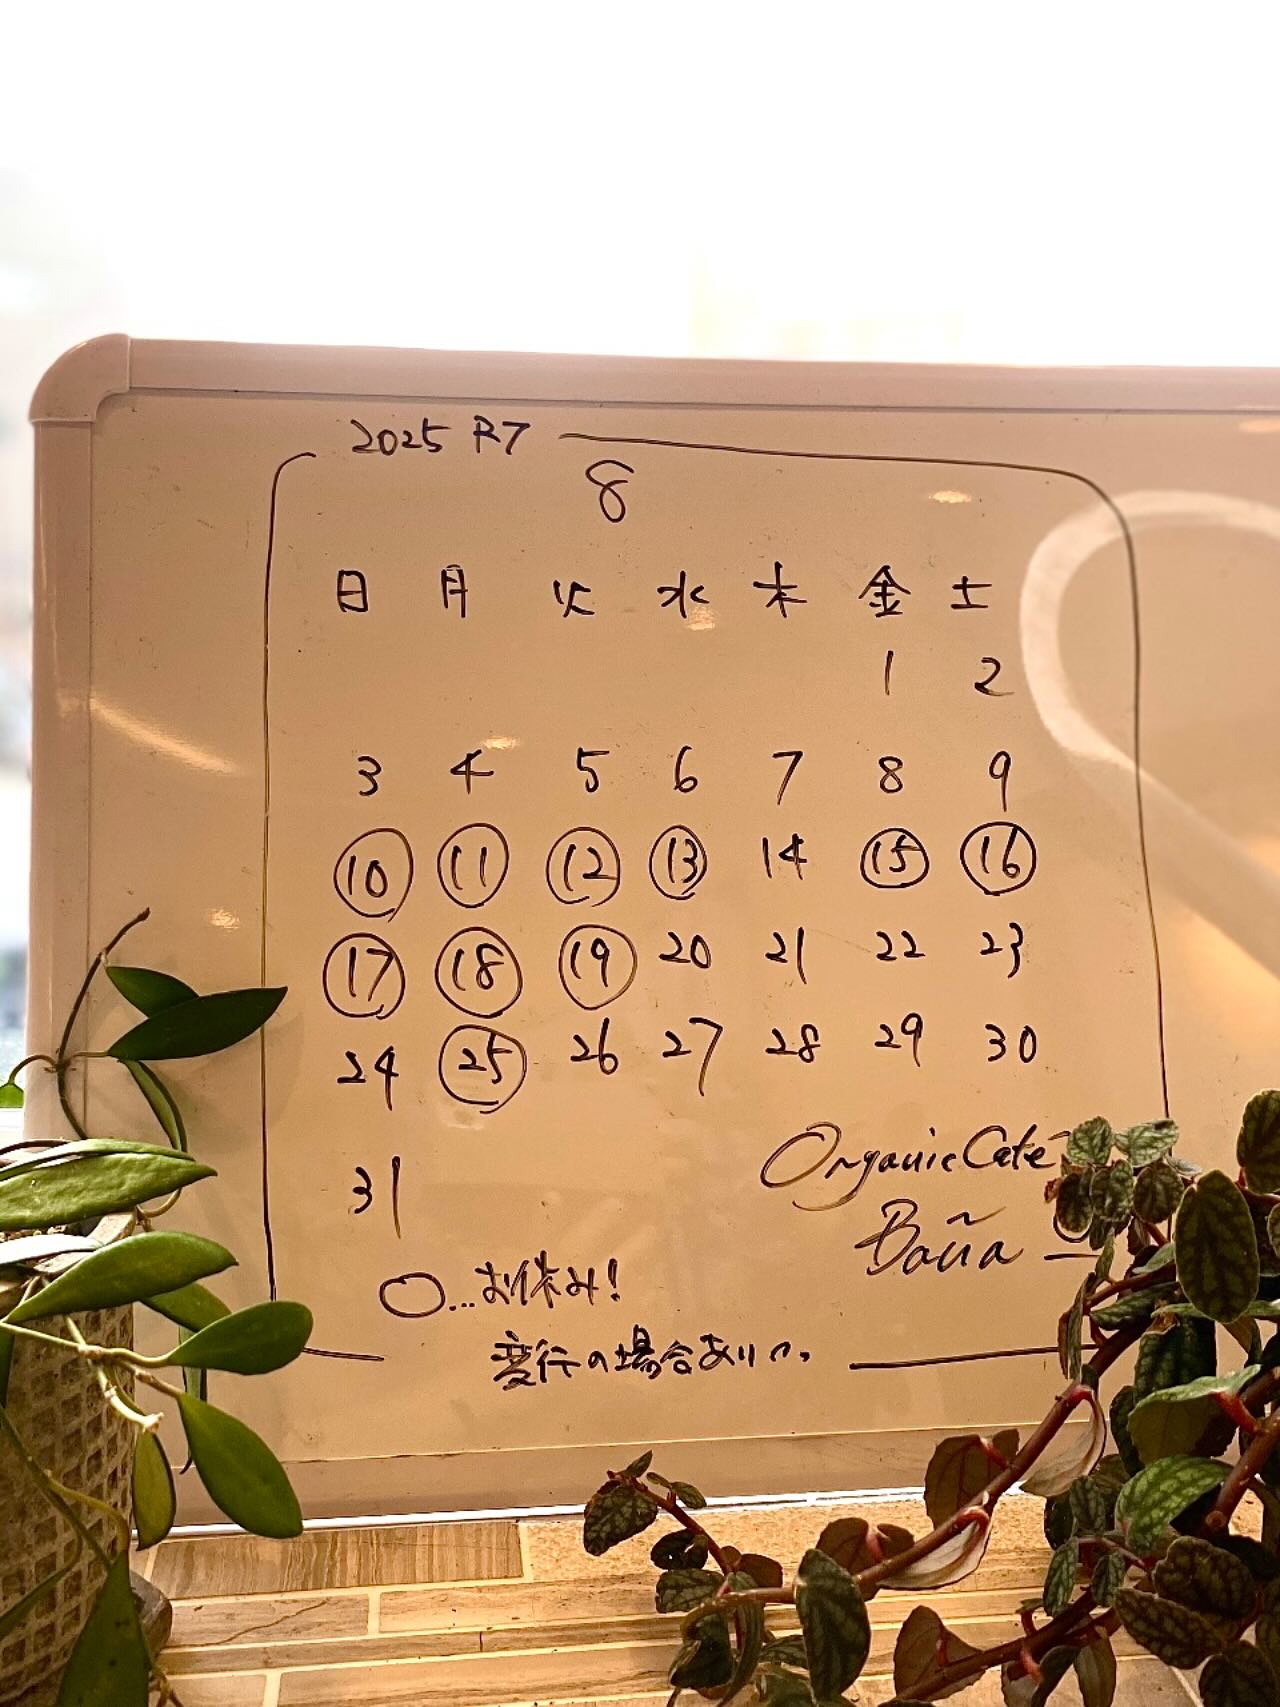 2025 R7
8
日 月 火 水 木 金 土
1 2
3 4 5 6 7 8 9
⑩ ⑪ ⑫ ⑬ 14 ⑮ ⑯
⑰ ⑱ ⑲ 20 21 22 23
24 ㉕ 26 27 28 29 30
31
Organic Café
Baña
○…お休み!
変行の場合あり